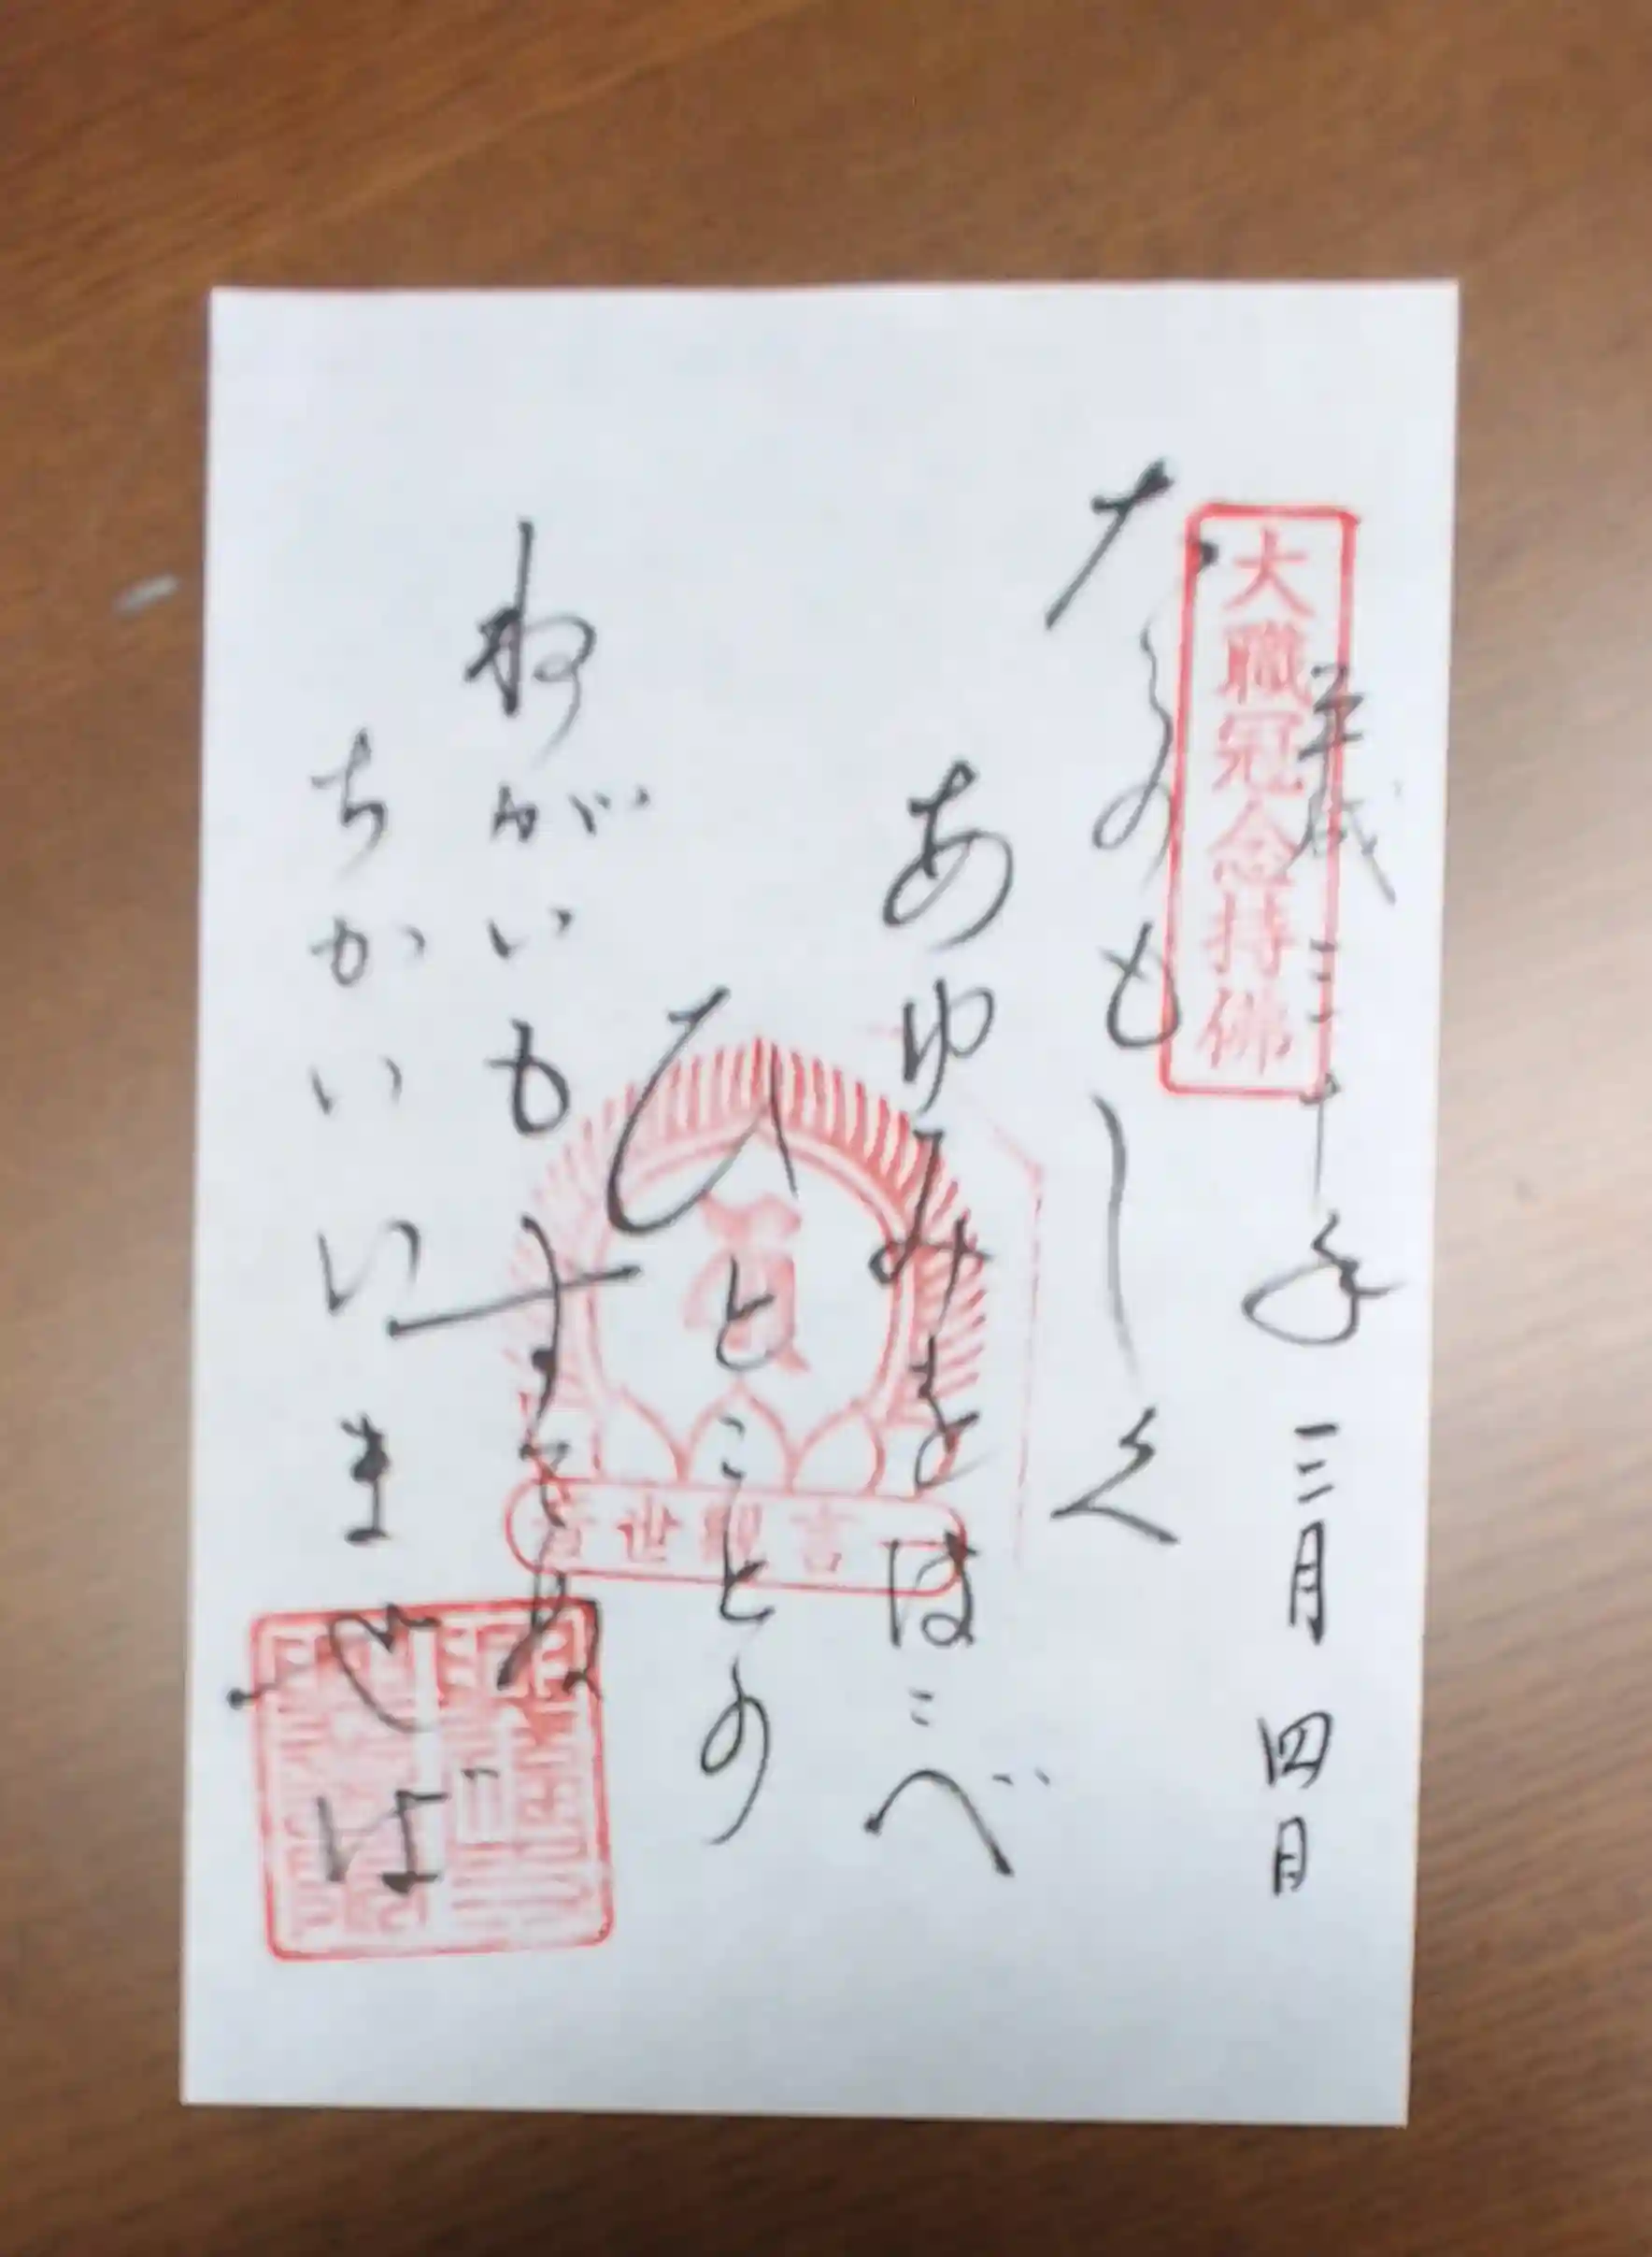 大職冠念持佛
平成三十年三月四日
たのもしく
あゆみをはこべ
ひとことの
ねがいもすてぬ
ちかいいませば
觀世音